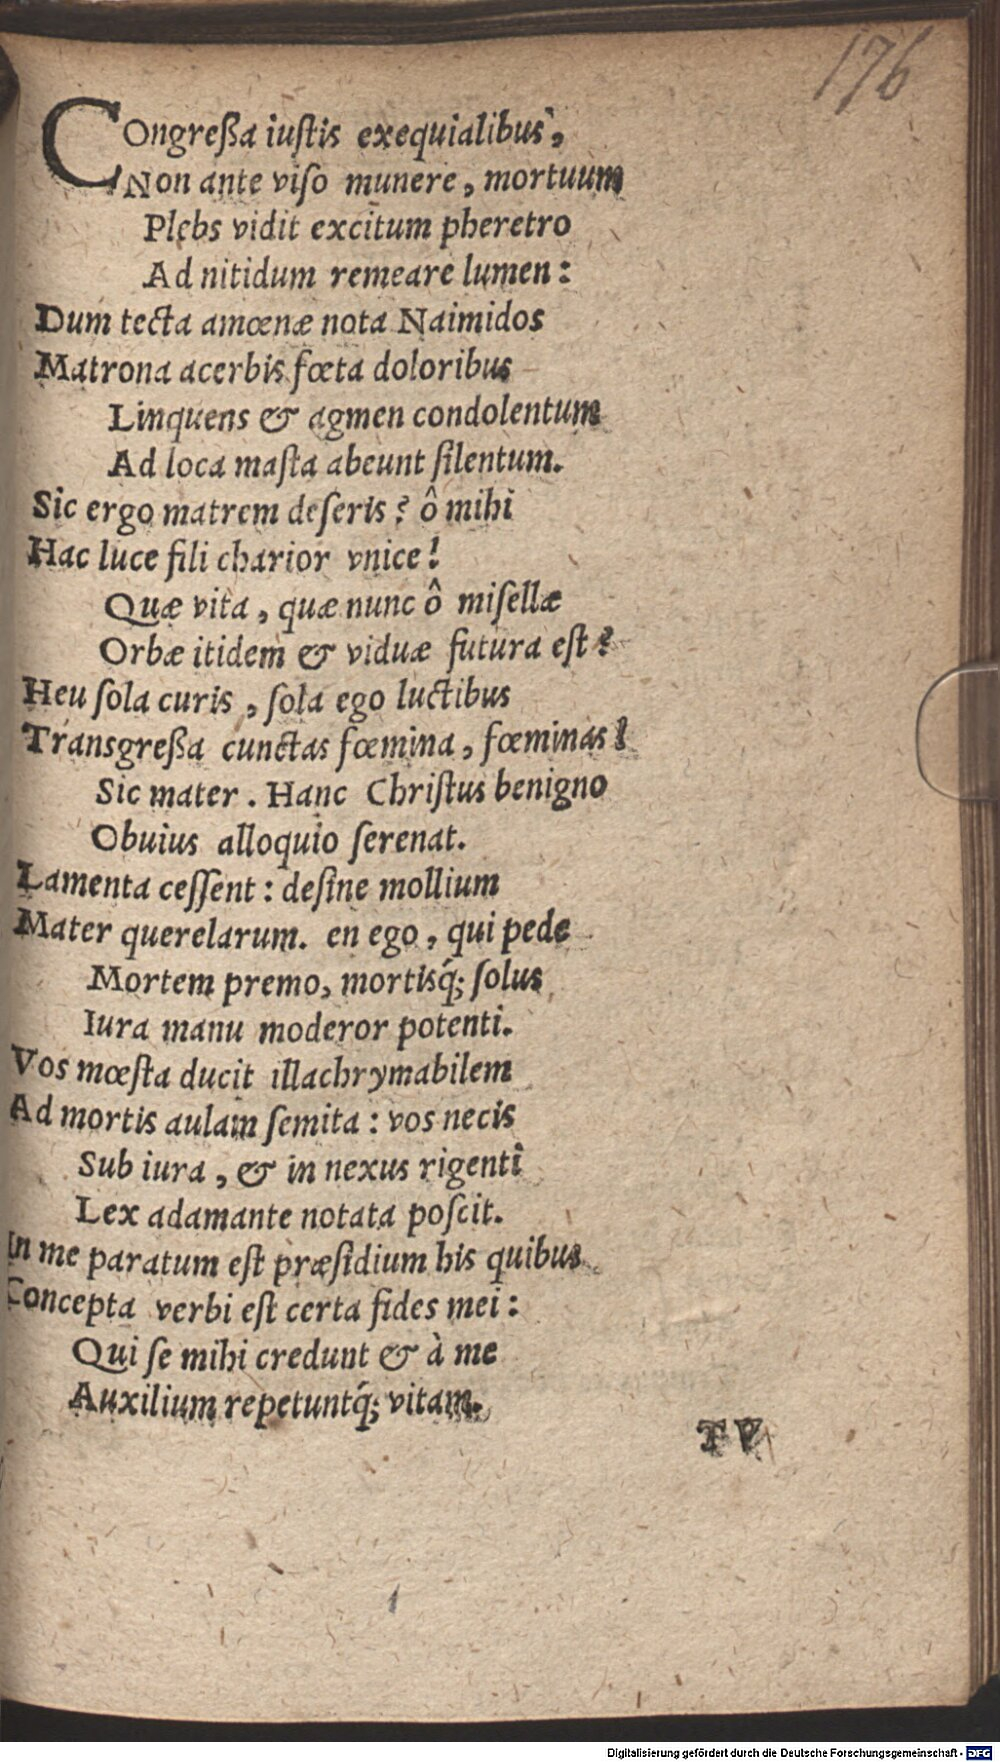 176
COngreßa iuſtis exequialibus,
Non ante viſo munere, mortuum
Plebs vidit excitum pheretro
Ad nitidum remeare lumen:
Dum tecta amœnæ nota Naimidos
Matrona acerbis fœta doloribus
Linquens & agmen condolentum
Ad loca mæſta abeunt ſilentum.
Sic ergo matrem deſeris? ô mihi
Hac luce fili charior vnice!
Quæ vita, quæ nunc ô miſellæ
Orbæ itidem & viduæ futura eſt?
Heu ſola curis, ſola ego luctibus
Transgreßa cunctas fœmina, fœminas!
Sic mater. Hanc Chriſtus benigno
Obuius alloquio ſerenat.
Lamenta ceſſent: deſine mollium
Mater querelarum. en ego, qui pede
Mortem premo, mortisq́; ſolus
Iura manu moderor potenti.
Vos mœſta ducit illachrymabilem
Ad mortis aulam ſemita: vos necis
Sub iura, & in nexus rigenti
Lex adamante notata poſcit.
In me paratum eſt præſidium his quibus
Concepta verbi eſt certa fides mei:
Qui ſe mihi credunt & à me
Auxilium repetuntq́; vitam.
TV
Digitalisierung gefördert durch die Deutsche Forschungsgemeinschaft - DFG